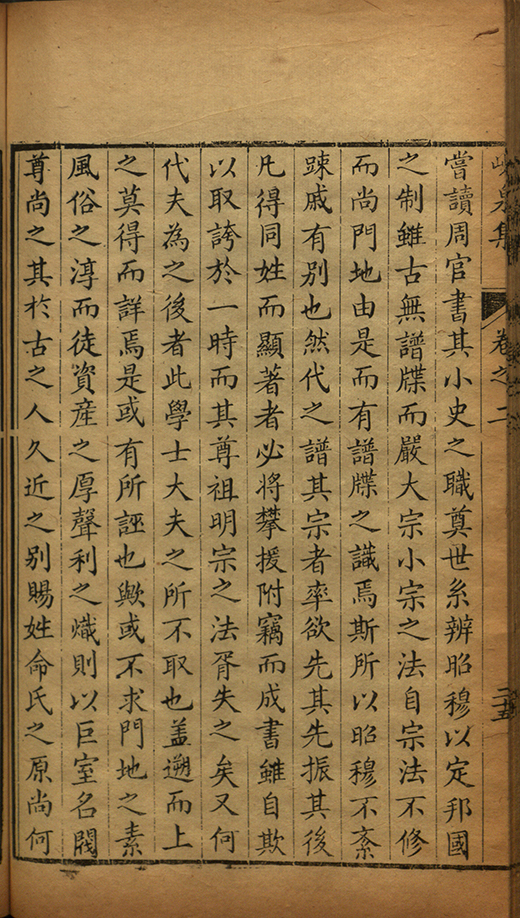 峴泉集 卷之二 二十五
嘗讀周官書其小史之職奠世系辨昭穆以定邦國
之制雖古無譜牒而嚴大宗小宗之法自宗法不修
而尚門地由是而有譜牒之識焉斯所以昭穆不紊
踈戚有别也然代之譜其宗者率欲先其先振其後
凡得同姓而顯著者必將攀援附竊而成書雖自欺
以取誇於一時而其尊祖明宗之法胥失之矣又何
代夫為之後者此學士大夫之所不取也盖遡而上
之莫得而詳焉是或有所誣也歟或不求門地之素
風俗之淳而徒資産之厚聲利之熾則以巨室名閥
尊尚之其於古之人久近之别賜姓命氏之原尚何